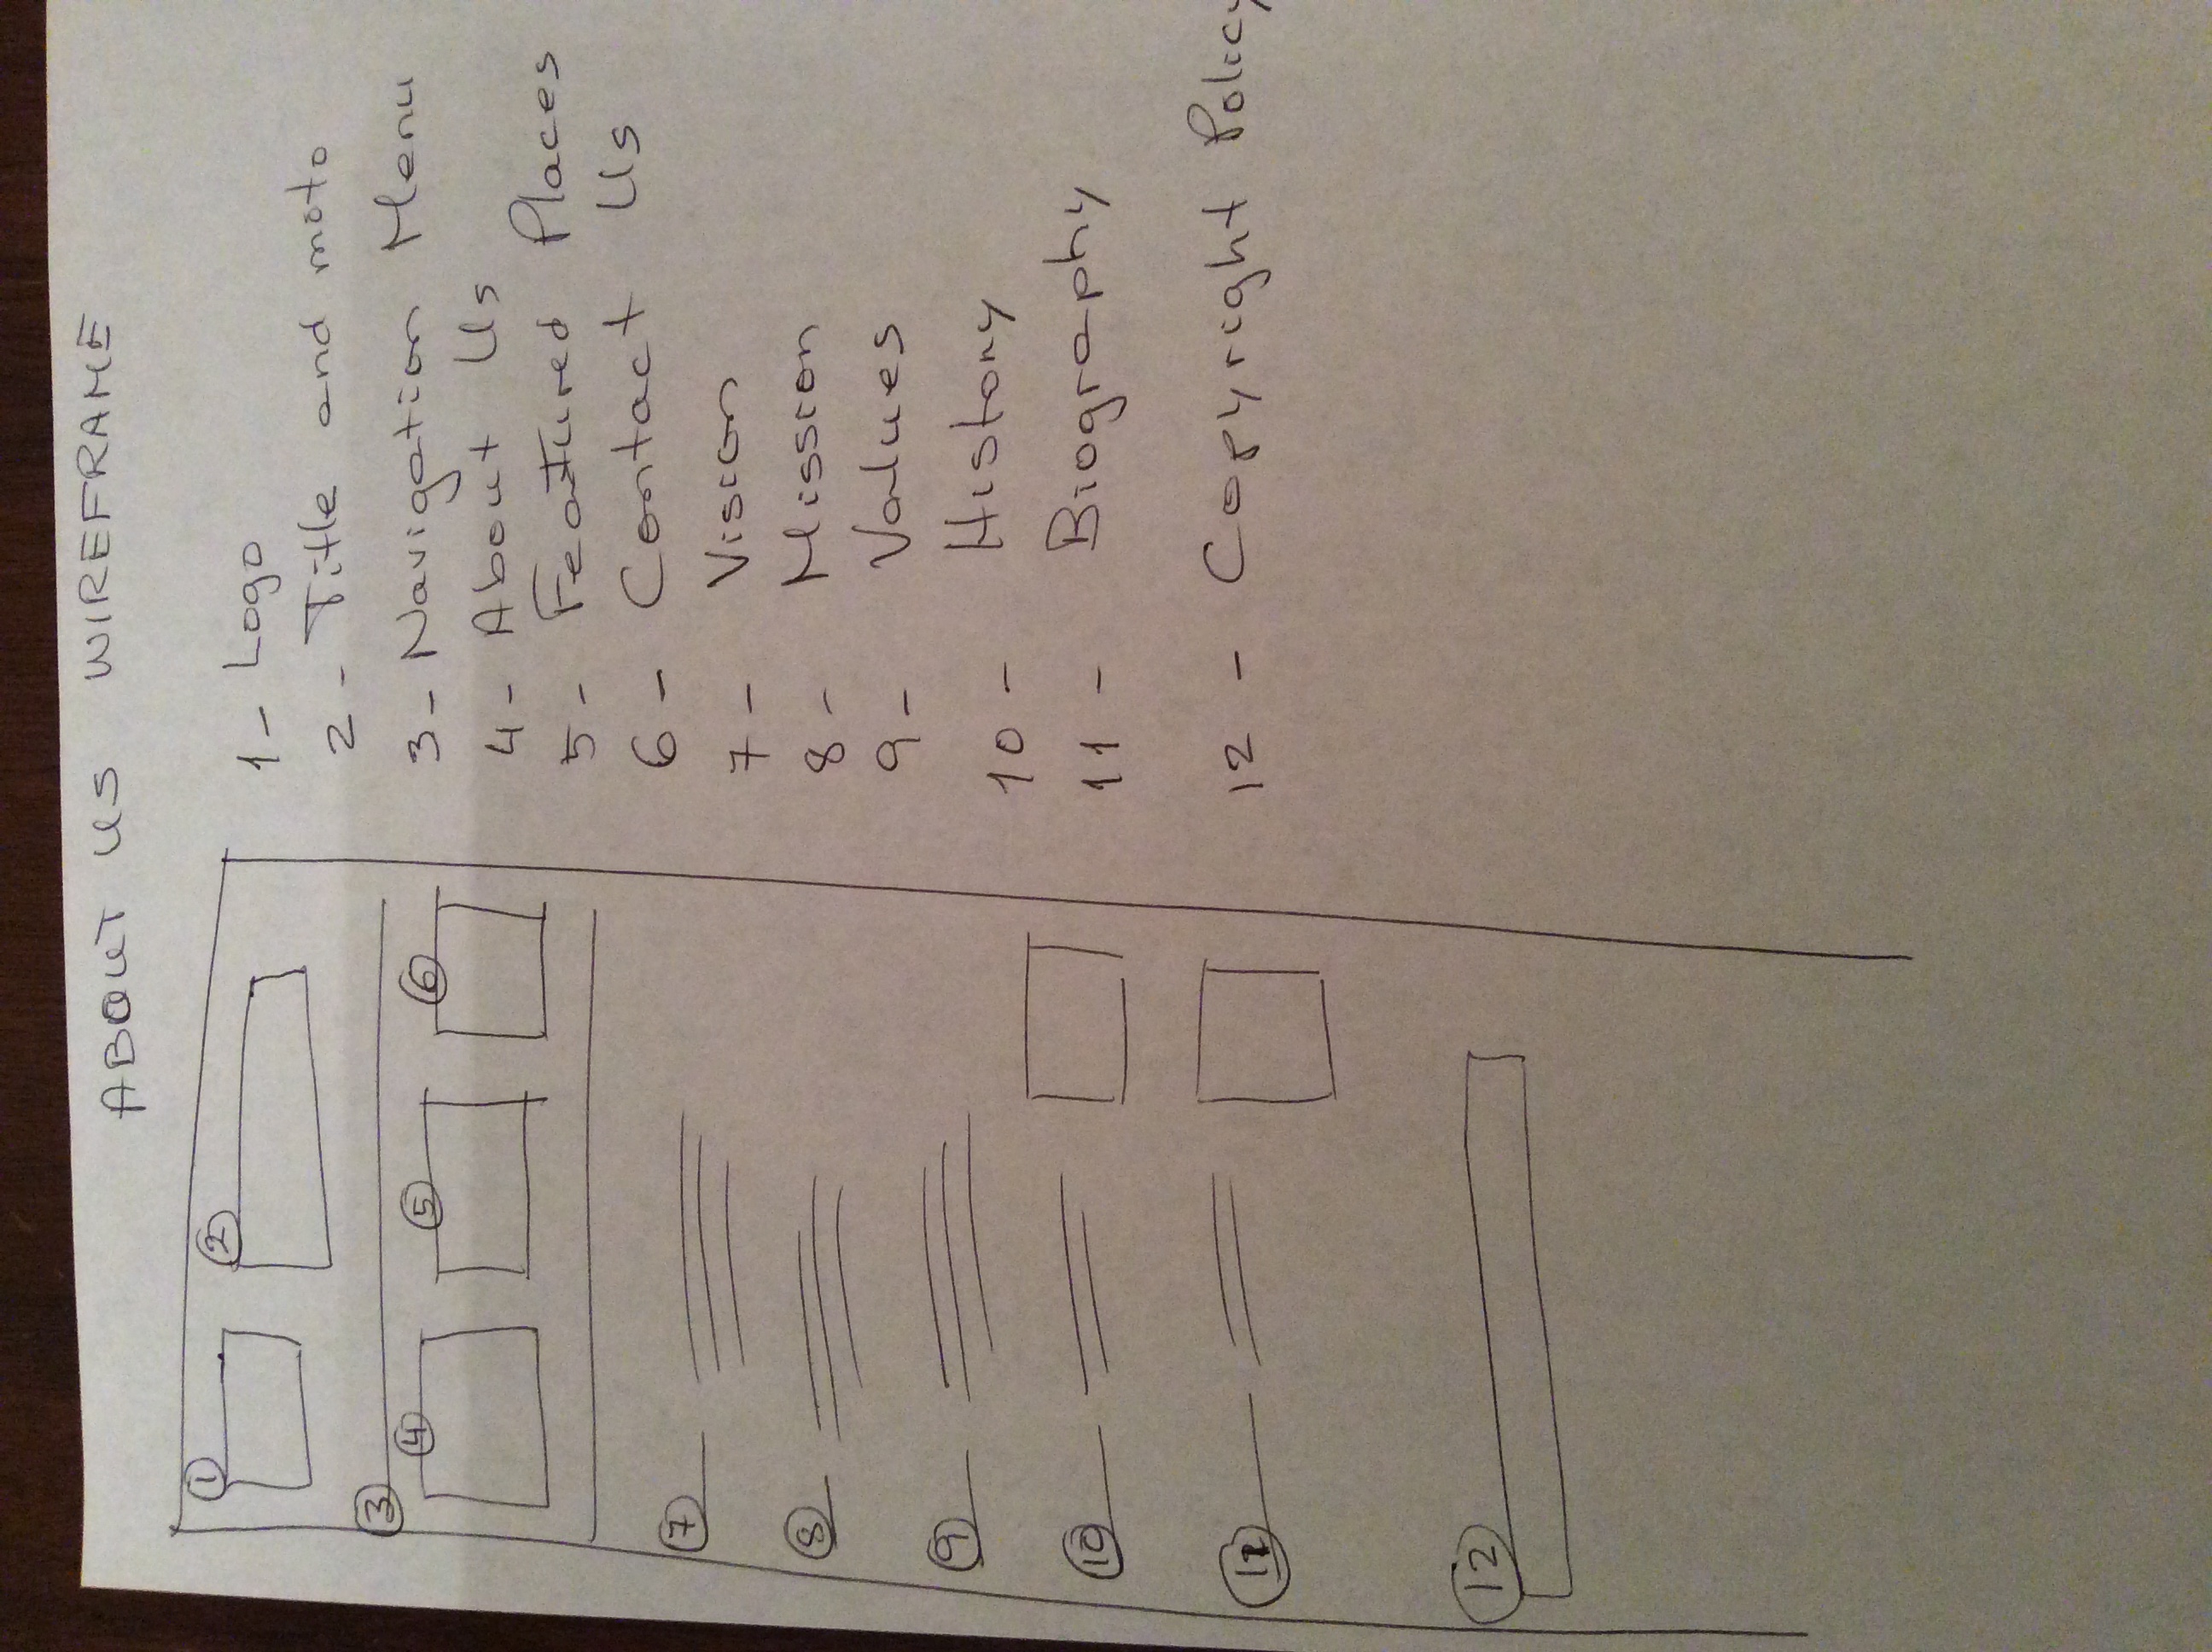 ABOUT US WIREFRAME
1
2
3
4
5
6
7
8
9
10
11
12
1 - Logo
2 - Title and moto
3 - Navigation Menu
4 - About Us
5 - Featured Places
6 - Contact Us
7 - Vision
8 - Mission
9 - Values
10 - History
11 - Biography
12 - Copyright Policy